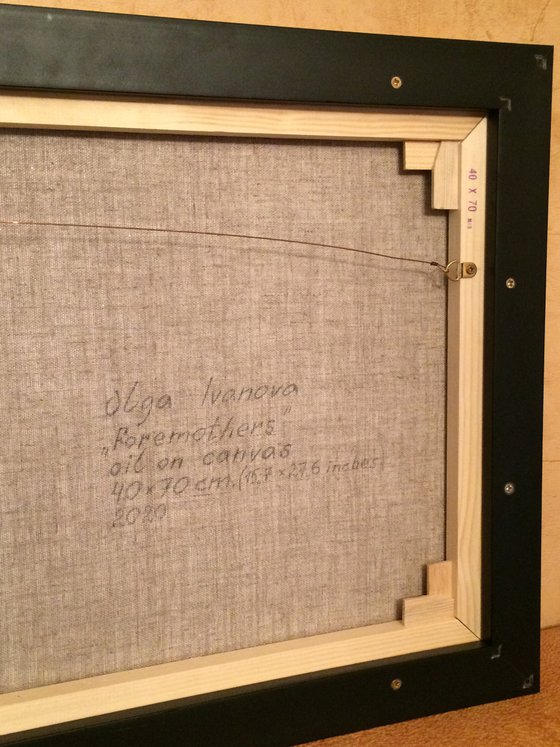 40 X 70
Olga Ivanova
„Foremothers"
oil on canvas
40×70 cm. (15,7 × 27,6 inches)
2020